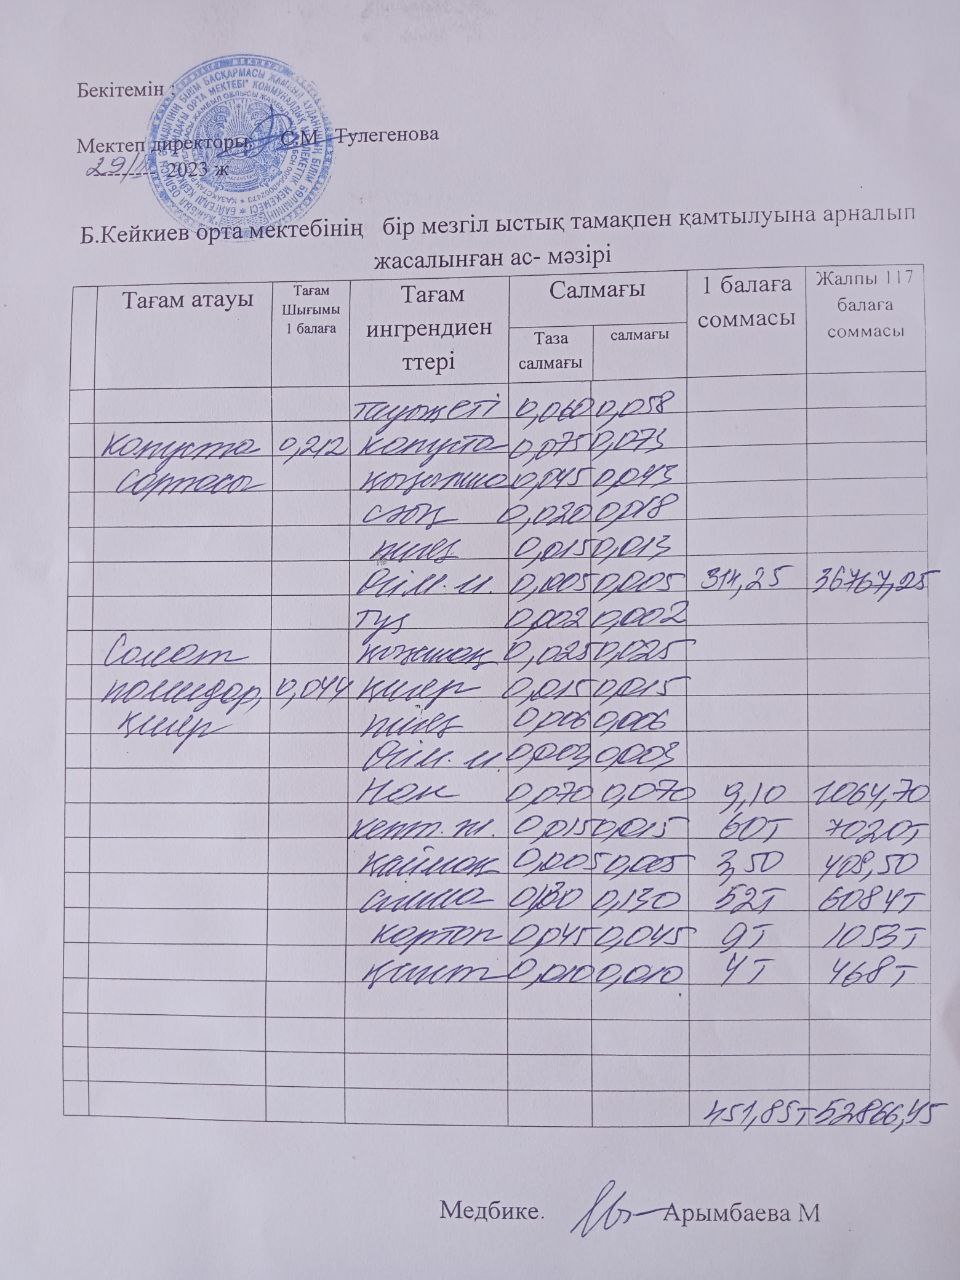 Бекітемін :
Мектеп директоры С.М Тулегенова
29/ 2023 ж
Б.Кейкиев орта мектебінің бір мезгіл ыстық тамақпен қамтылуына арналып
жасалынған ас- мәзірі
Тағам атауы Тағам Шығымы 1 балаға Тағам ингрендиен ттері Салмағы 1 балаға соммасы Жалпы 117 балаға соммасы
Таза салмағы салмағы
тауық еті 0,060 0,058
Капуста 0,212 капуста 0,075 0,073
Сорпасы қызылша 0,045 0,043
сәбіз 0,020 0,018
пияз 0,015 0,013
Өсім. м. 0,005 0,005 314,25 36767,25
тұз 0,002 0,002
Салат қызанақ 0,025 0,025
помидор, 0,044 қияр 0,015 0,015
қияр пияз 0,006 0,006
Өсім. м. 0,003 0,003
Нан 0,070 0,070 9,10 1064,70
кепт. ж. 0,015 0,015 60т 7020т
қаймақ 0,005 0,005 3,50 409,50
алма 0,130 0,130 52т 6084т
картоп 0,045 0,045 9т 1053т
қант 0,010 0,010 4т 468т
451,85т 52866,45
Медбике. Арымбаева М